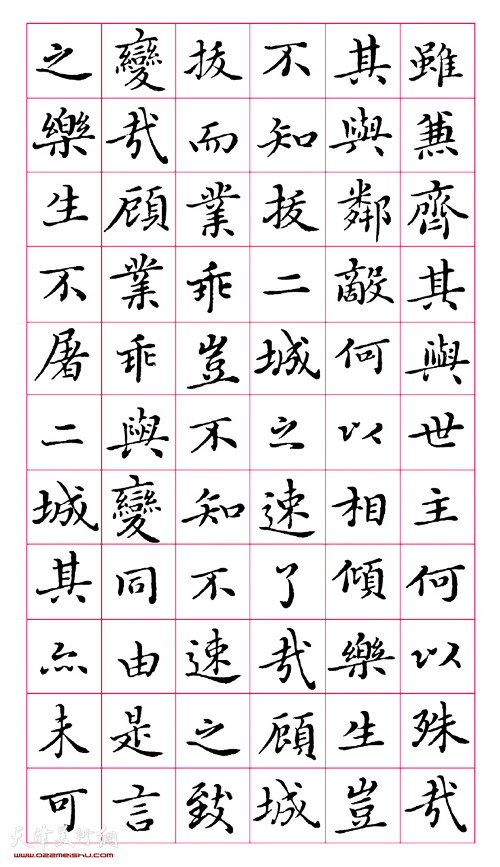 雖兼齊其與世主何以殊哉
其與鄰敵何以相傾樂生豈
不知拔二城之速了哉顧城
拔而業乖豈不知不速之致
變哉顧業乖與變同由是言
之樂生不屠二城其亦未可
天津美術網
www.022meishu.com